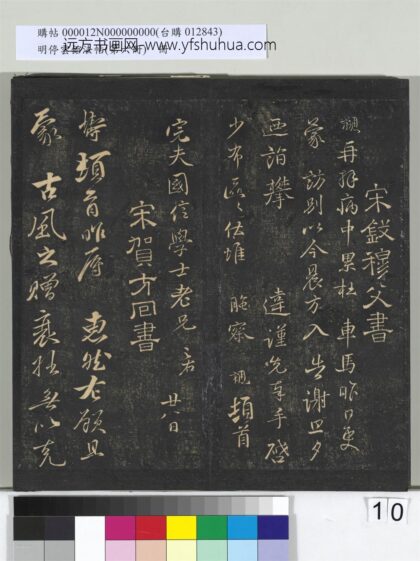 購帖 000012N000000000(台購 012843)
明停雲館法帖
远方书画网-www.yfshuhua.com
宋錢穆父書
勰再拜病中累枉 車馬昨日更
蒙 訪別以今晨方入 告謝旦夕
迺詣攀 違謹先奉手啓
少布區區伏惟 照察 勰頓首
完夫國信學士老兄 廿八日
宋賀方回書
鑄頓首昨辱 惠然左顧且
蒙 古風之贈衰拙無以克
10